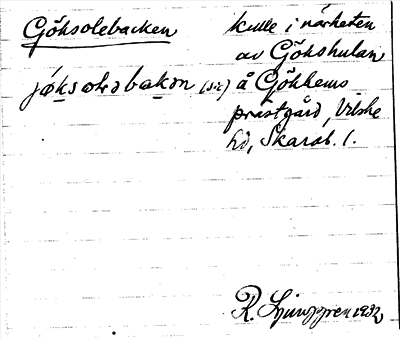 Göksolebacken
jǿksωləbakən (sic)
kulle i närheten
av Gökshulan
å Gökhems
prästgård, Vilske
hd, Skarab. l.
R. Ljunggren 1932